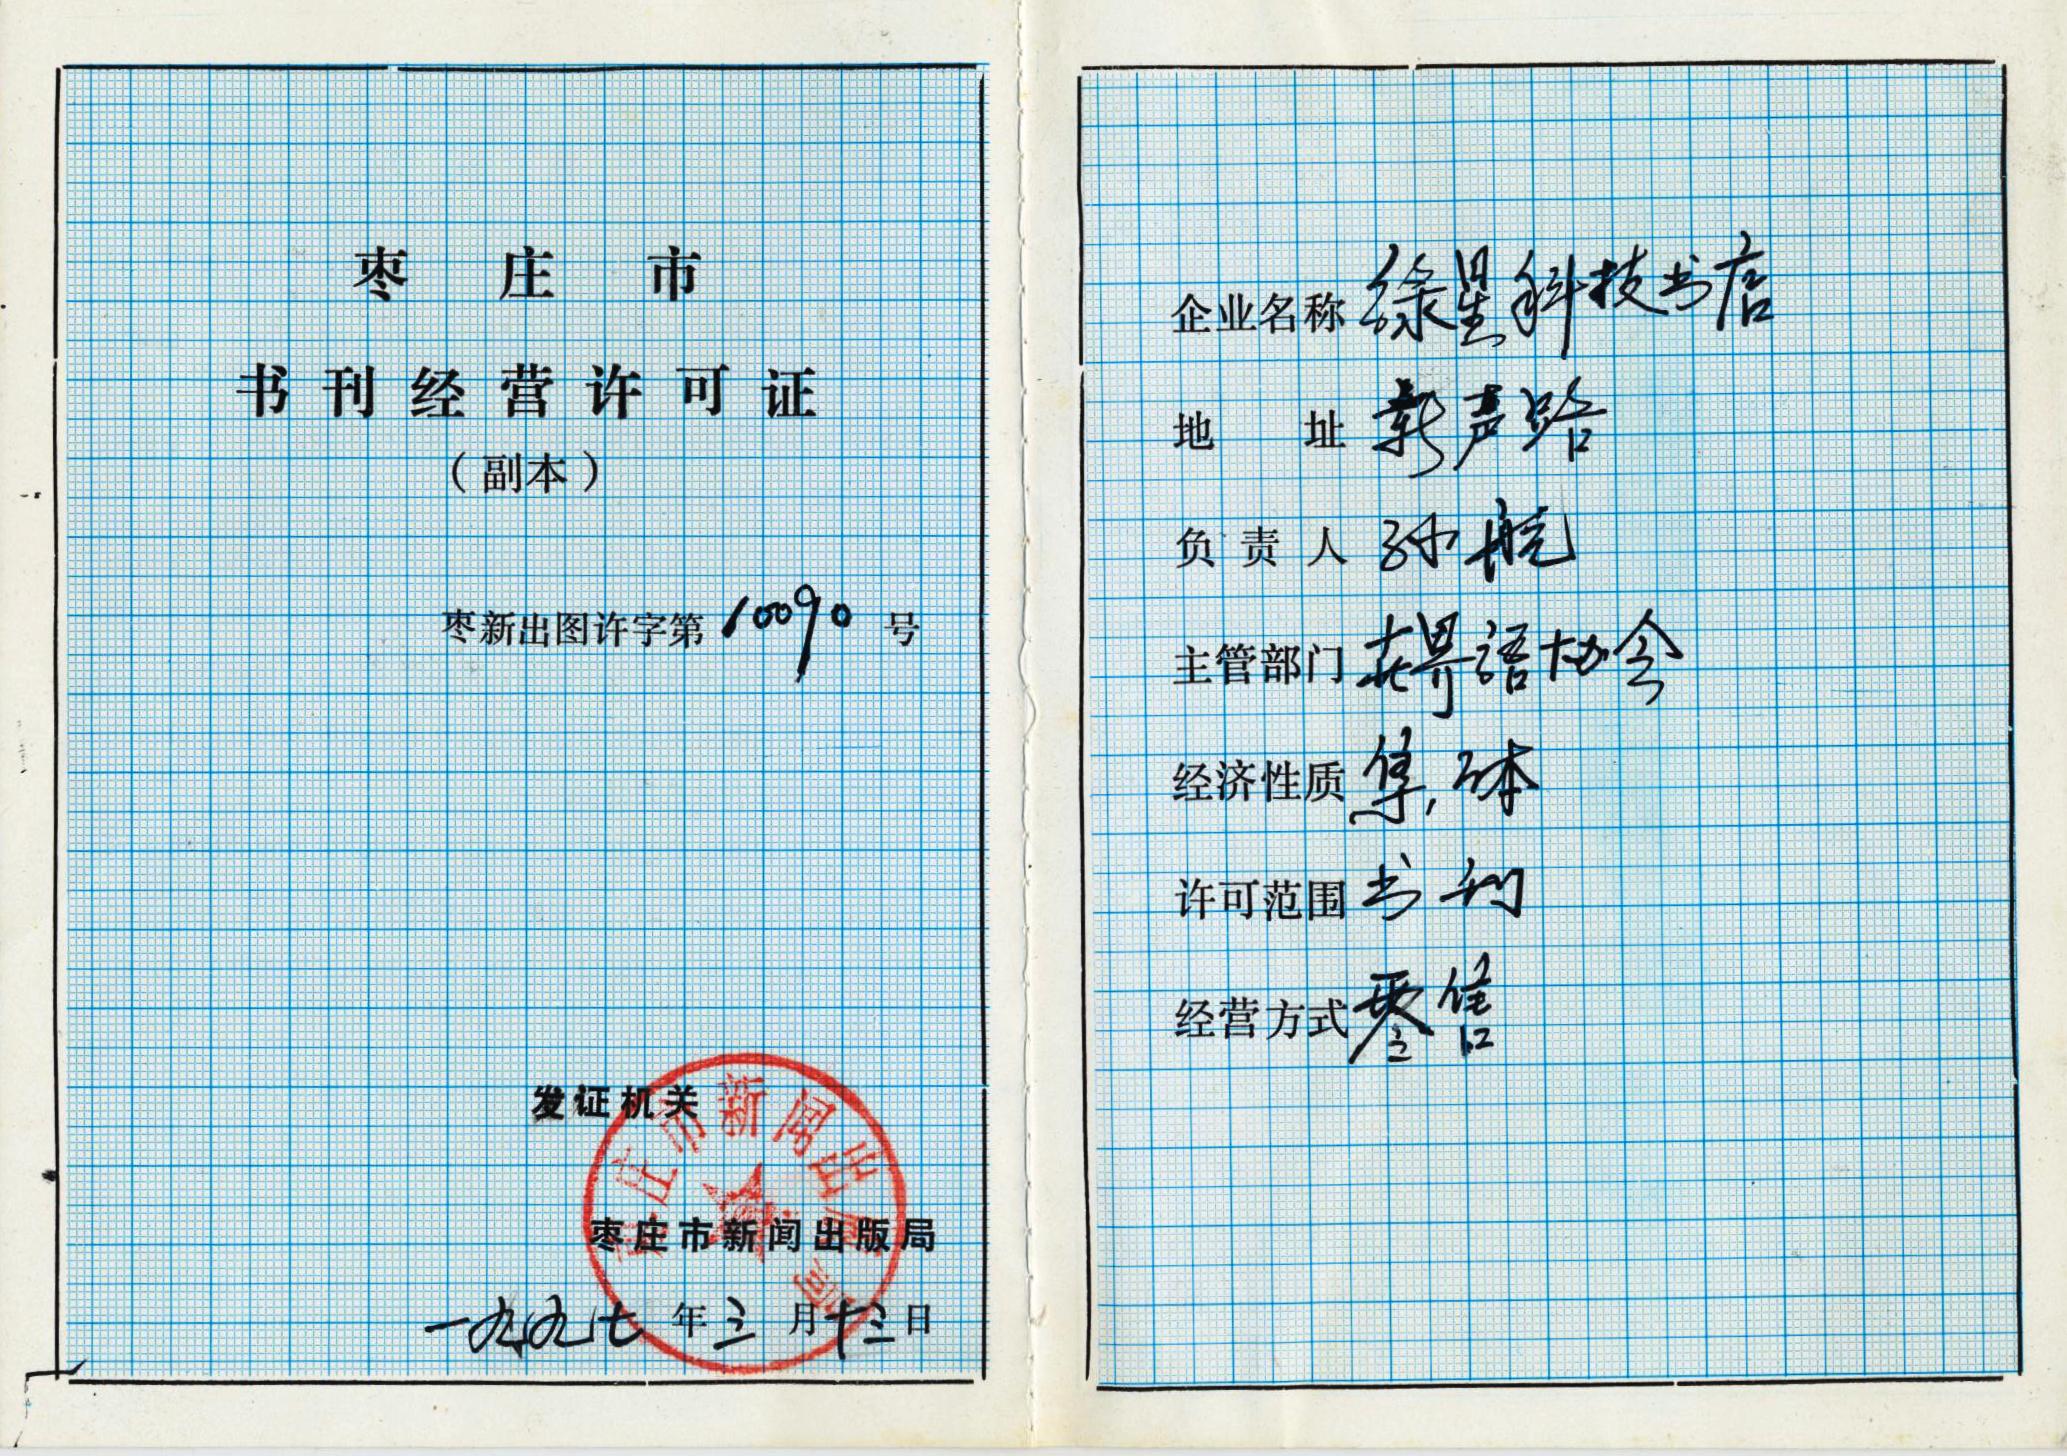 枣庄市
书刊经营许可证
（副本）
枣新出图许字第10090号
发证机关
枣庄市新闻出版局
一九九七年三月十三日
枣庄市新闻出版局
企业名称 绿星科技书店
地址 新声路
负责人 孙航
主管部门 世界語协会
经济性质 集体
许可范围 书刊
经营方式 零售